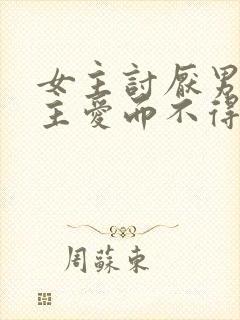 女主討厭男
主愛而不得
周蘇東